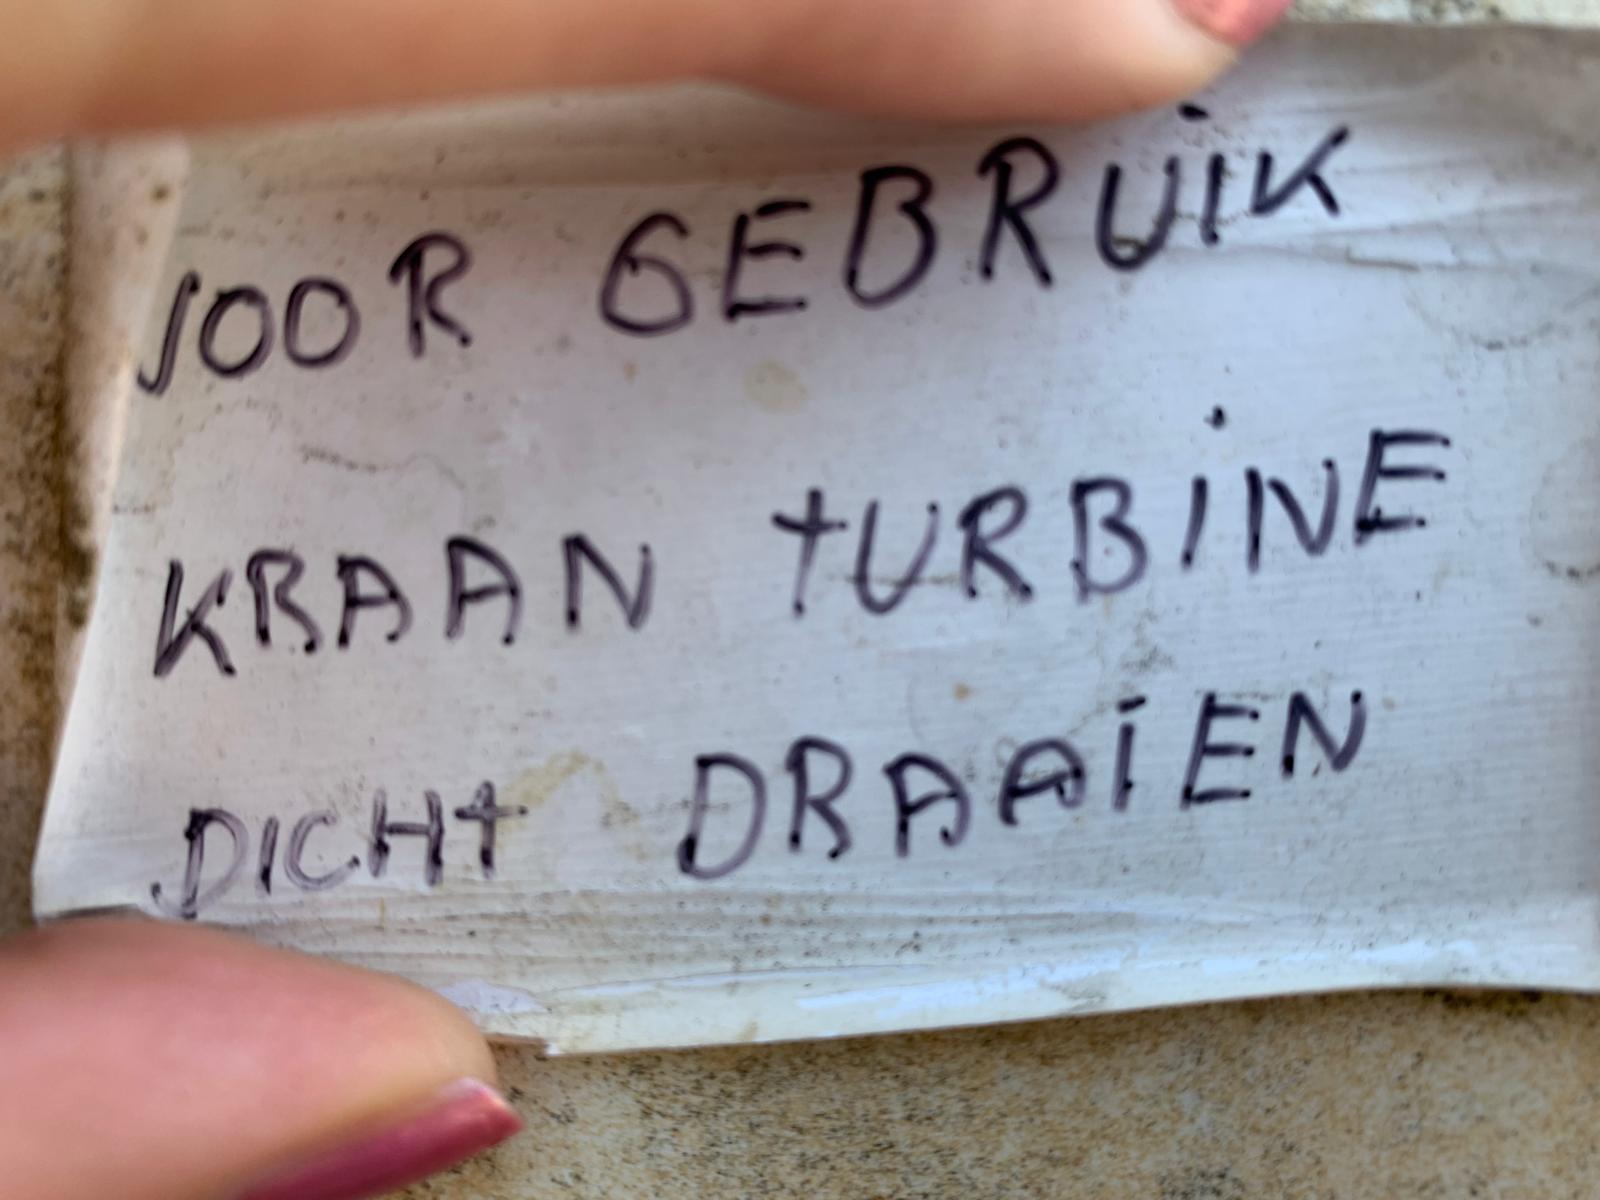 VOOR GEBRUIK
KRAAN TURBINE
DICHT DRAAIEN